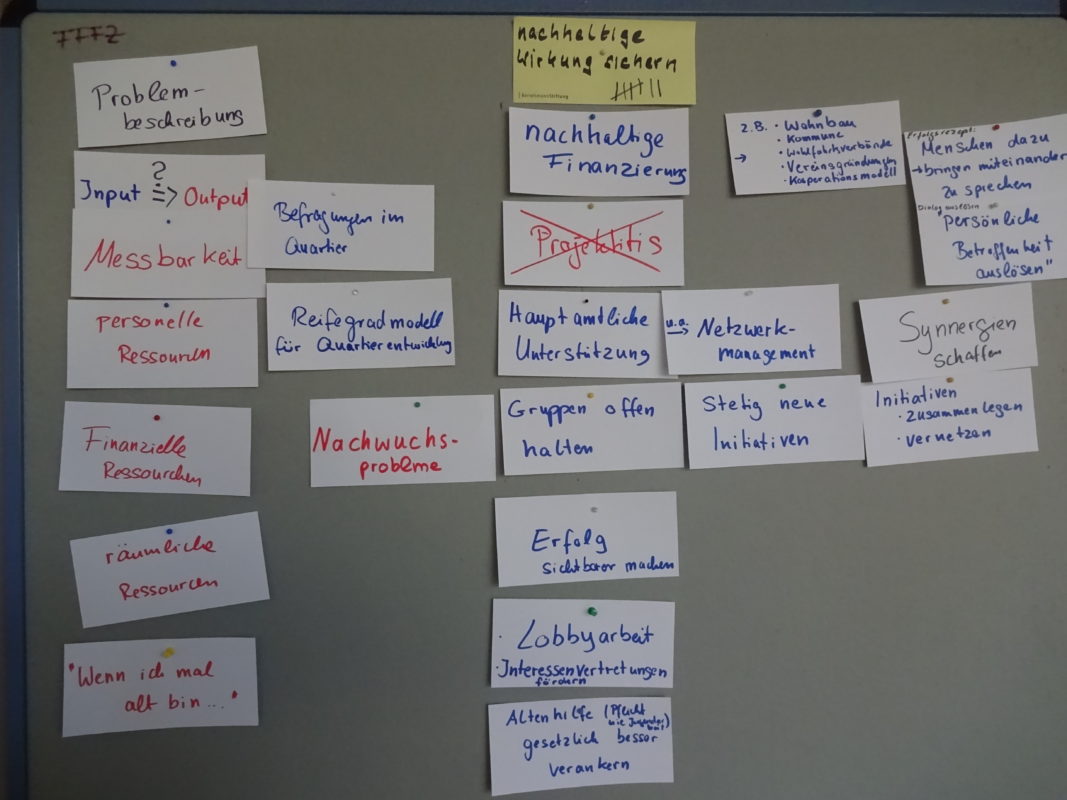 nachhaltige
Wirkung sichern
BertelsmannStiftung
Problem-
beschreibung
Input ?=> Output
Messbarkeit
Befragungen im
Quartier
personelle
Ressourcen
Reifegradmodell
für Quartierentwicklung
Finanzielle
Ressourchen
Nachwuchs-
probleme
räumliche
Ressourcen
"Wenn ich mal
alt bin..."
nachhaltige
Finanzierung
z.B. • Wohnbau
• Kommune
→ • Wohlfahrtverbände
• Vereinsgründungen
• Kooperationsmodell
Erfolgsrezept:
Menschen dazu
→ bringen miteinander
zu sprechen
Dialog auslösen
"persönliche
Betroffenheit
auslösen"
Projektitis
Hauptamtliche
Unterstützung
u.a. → Netzwerk-
management
Synnergien
schaffen
Gruppen offen
halten
Stetig neue
Initiativen
Initiativen
• zusammenlegen
• vernetzen
Erfolg
sichtbarer machen
• Lobbyarbeit
• Interessenvertretungen
fördern
Altenhilfe (Pflicht
wie
gesetzlich besser
verankern